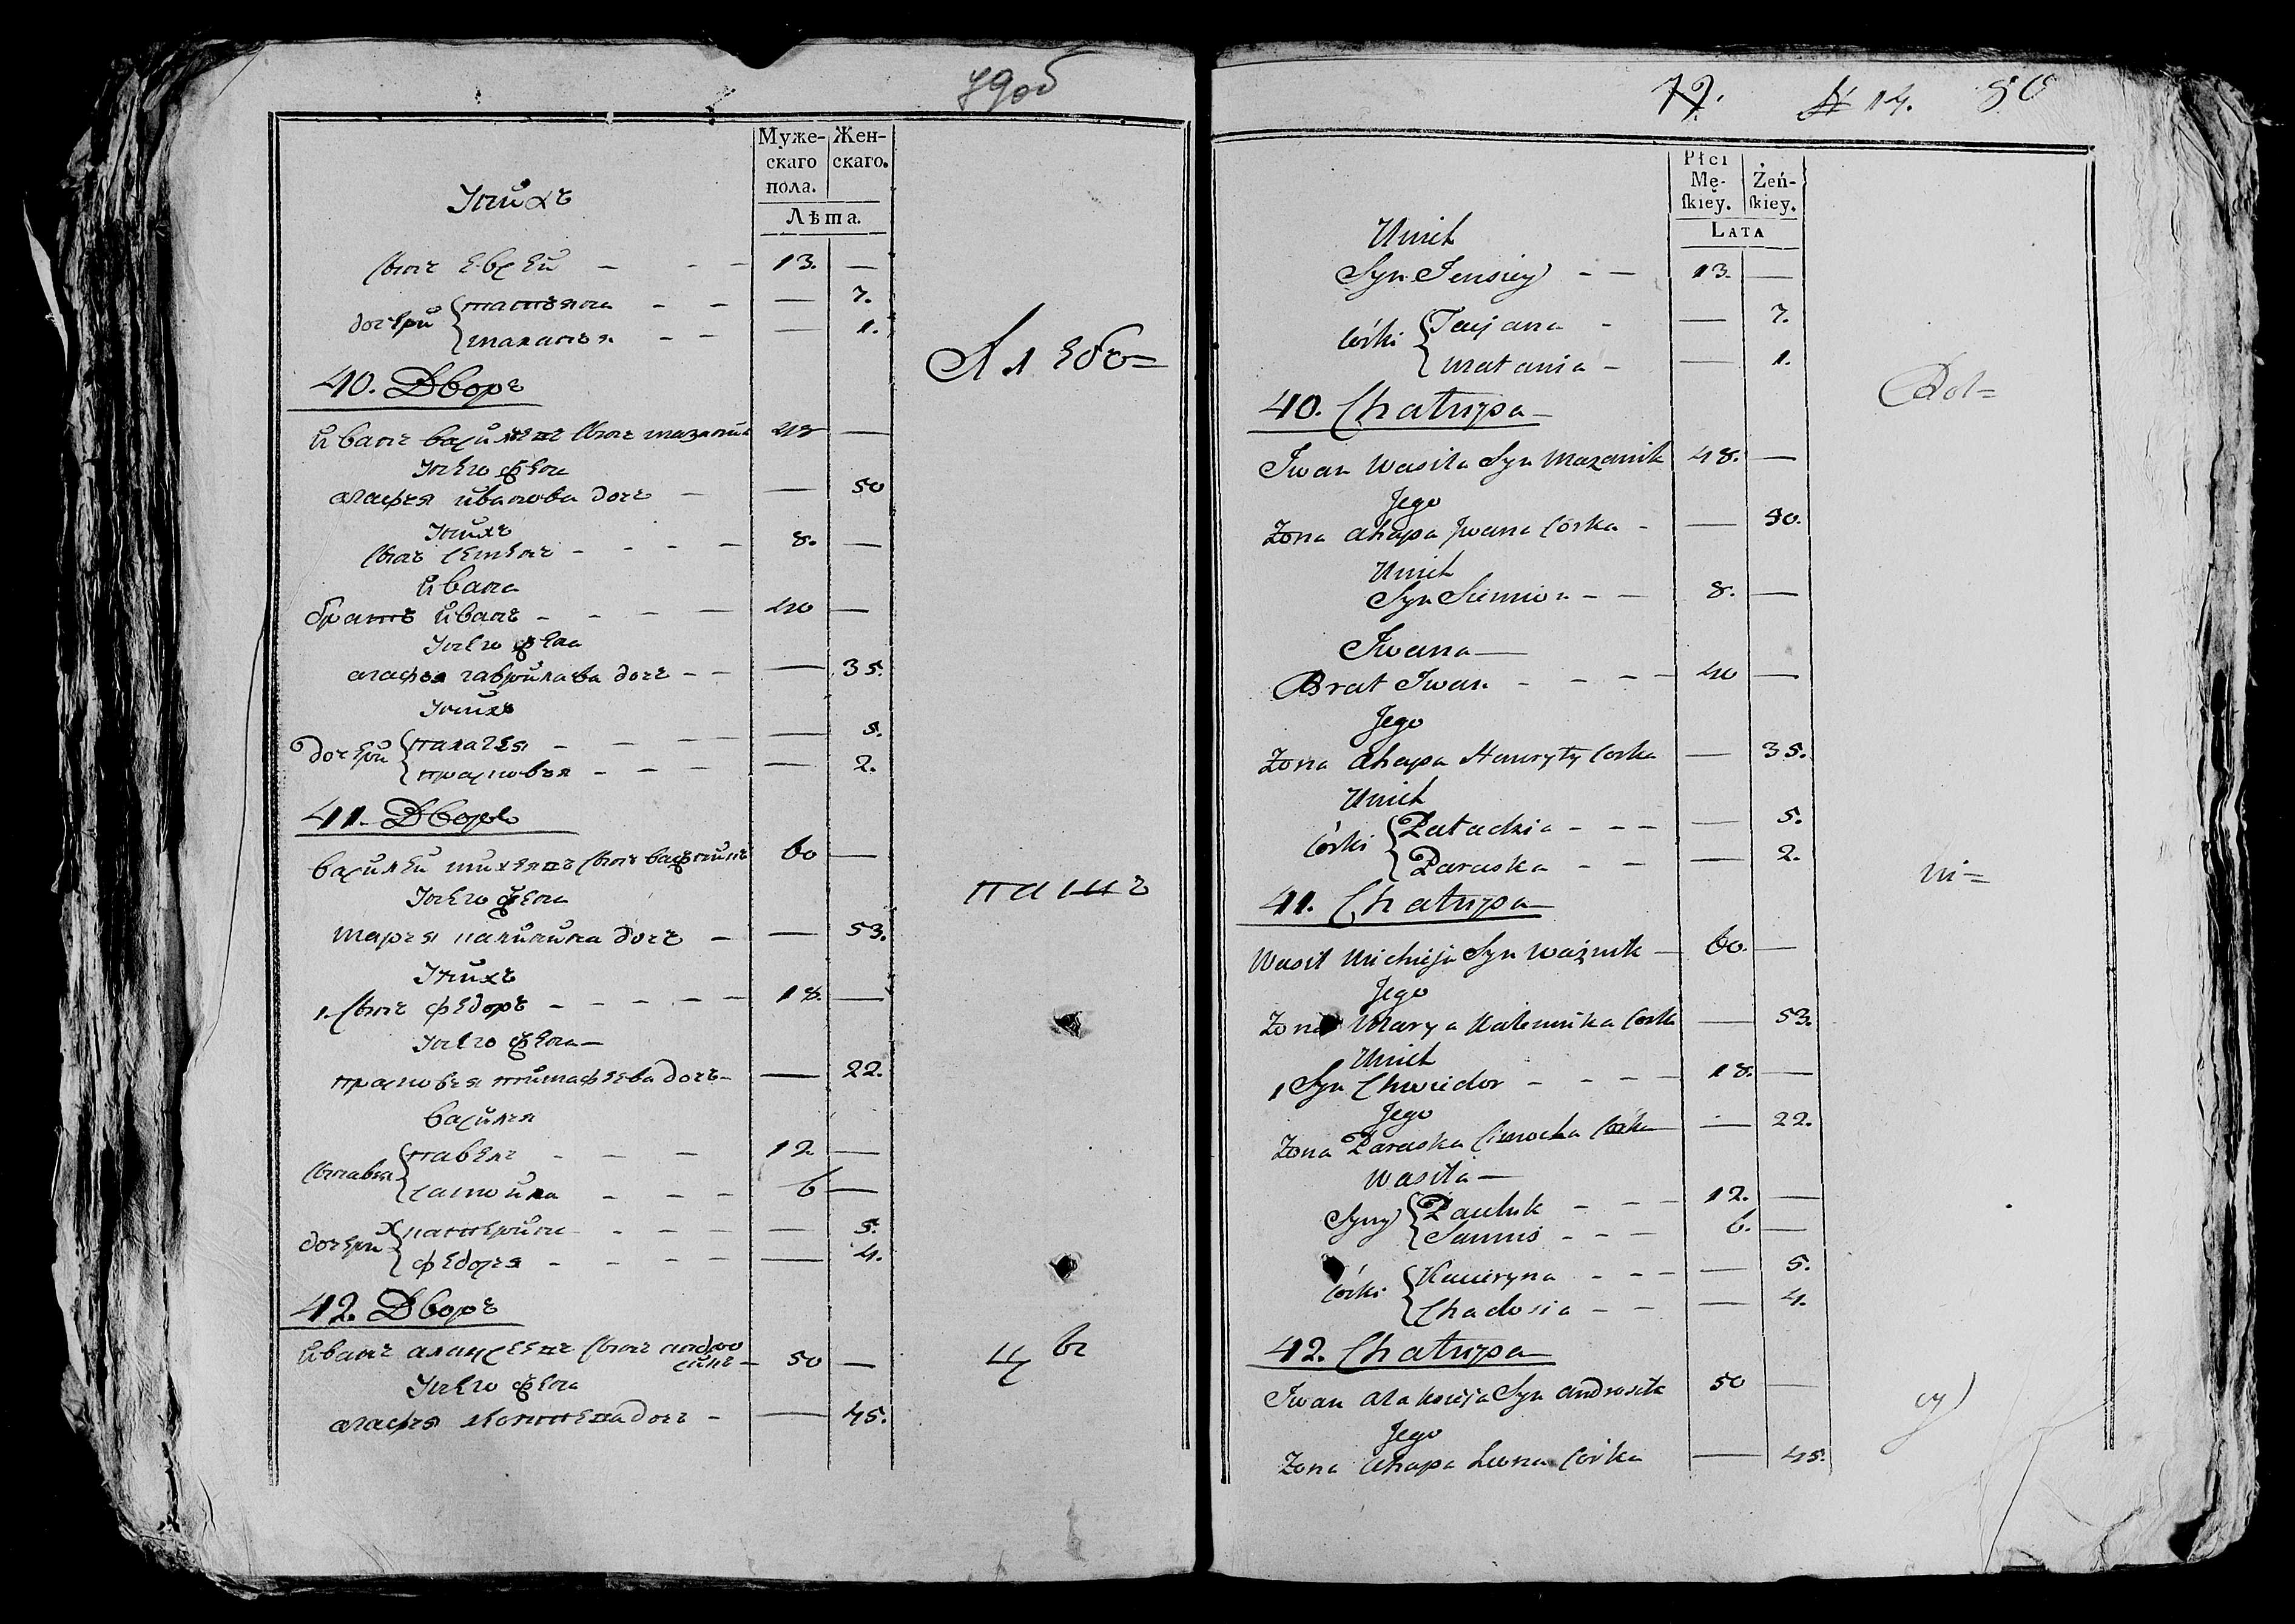 79об
Муже-
скаго
пола.
Жен-
скаго.
Лѣта.
Унихъ
сынъ евсей - - - 13. —
дочери татьяна - - — 7.
маланья - - — 1.
40. Дворъ
Иванъ василевъ сынъ мазаникъ 48 —
Унего жена
агафья иванова дочь - — 50
Унихъ
сынъ семенъ - - - - 8. —
Ивана
братъ Иванъ - - - - 40 —
Унего жена
агафья гаврилава дочь - - — 35.
Унихъ
дочери палагея - - - - — 5.
прасковья - - - - — 2.
41. Дворъ
василей михеевъ сынъ 60 —
Унего жена
марья калинина дочь - — 53.
Унихъ
1. сынъ федоръ - - - - - 18. —
Унего жена —
прасковья тимафеева дочь - — 22.
василья
сыновья павелъ - - - 12 —
самойла - - - 6 —
дочери катерина - - - - — 5.
федосья - - - - — 4.
42. Дворъ
Иванъ алексеевъ сынъ андро
сикъ — 50 —
Унего жена
агафья леонтьева дочь - — 45.
Хлебо=
паш
цы
14. 80
Płci
Mę-
ſkiey.
Żeń-
ſkiey.
LATA
Unich
Syn Jeusiey - — 13. —
Córki Tacjana - — 7.
Małania - — 1.
40. Chałupa
Iwan Wasila Syn Mazanik 48. —
Jego
Żona Ahapa Jwana Córka - — 50.
Unich
Syn Siemion - — 8. —
Iwana —
Brat Iwan - - - - 40 —
Jego
Żona Ahapa Hawryły Corka — 35.
Unich
Córki Pałachia - - - — 5.
Paraska - - — 2.
41. Chałupa
Wasil Michieja Syn Ważnik — 60. —
Jego
Żona Marya Kalennika Corka — 53.
Unich
1 Syn Chwiedor - - - - 18. —
Jego
Żona Paraska Cimocha Córka — 22.
Wasila —
Syny Pauluk - - - 12. —
Samus - - - 6. —
Córki Kaciryna - - - — 5.
Chadosia - - — 4.
42. Chałupa
Iwan Alaksieja Syn Androsik 50 —
Jego
Żona Ahapa Leona Córka — 45.
Rol=
ni=
cy